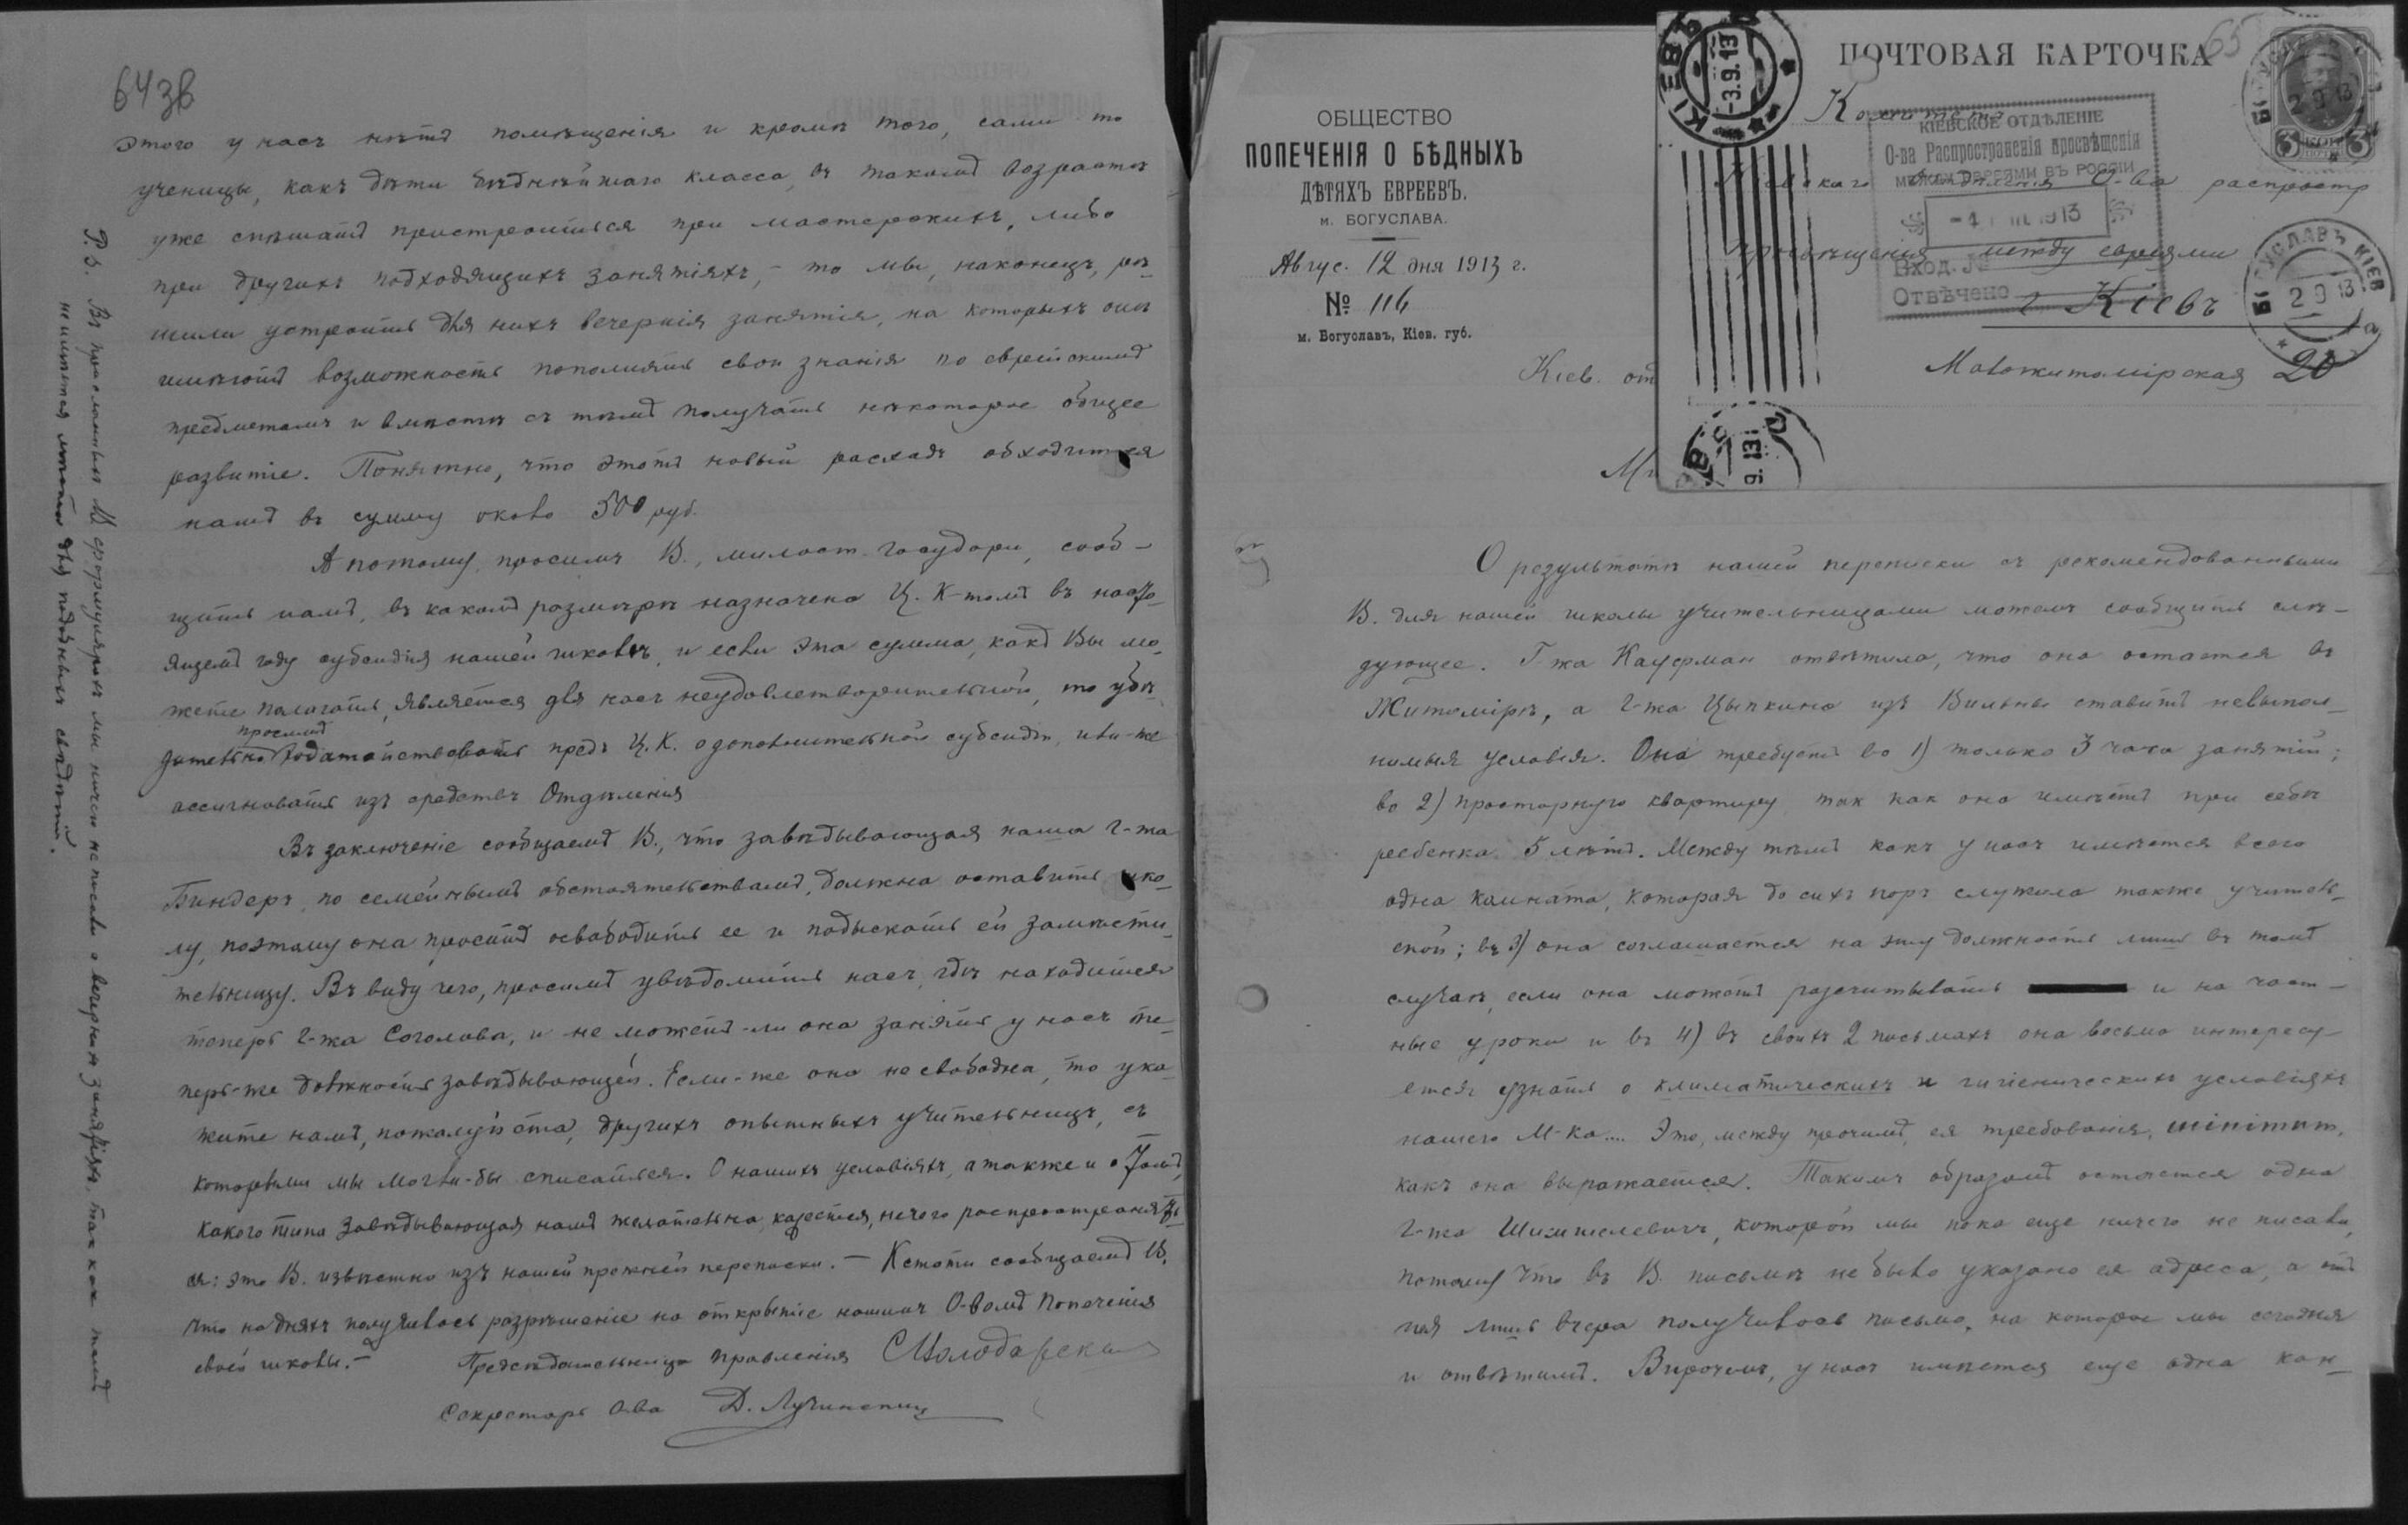 64 зв
этого у насъ нѣтъ помѣщенія и кромѣ того, сами то
ученицы, какъ дѣти бѣднѣйшаго класса, въ такомъ возрастѣ
уже спѣшатъ пристроиться при мастерскихъ, либо
при другихъ подходящихъ занятіяхъ, – то мы, наконецъ, рѣ-
шили устроить для нихъ вечернія занятія, на которыхъ онѣ
имѣютъ возможность пополнять свои знанія по еврейскимъ
предметамъ и вмѣстѣ съ тѣмъ получать нѣкоторое общее
развитіе. Понятно, что этотъ новый расходъ обходится
намъ въ сумму около 500 руб.
А потому, просимъ В., милост. государи, сооб-
щить намъ, въ какомъ размѣрѣ назначена Ц. К-томъ въ насто-
ящемъ году субсидія нашей школѣ, и если эта сумма, какъ Вы мо-
жете полагать, является для насъ неудовлетворительной, то убѣ-
просимъ
дительно ходатайствовать предъ Ц. К. о дополнительной субсидіи, или-же
ассигновать изъ средствъ Отдѣленія
Въ заключеніе сообщаемъ В., что завѣдывающая наша г-жа
Биндеръ, по семейнымъ обстоятельствамъ, должна оставить шко-
лу, поэтому она проситъ освободить ее и подыскать ей замѣсти-
тельницу. Въ виду чего, просимъ увѣдомить насъ, гдѣ находится
теперь г-жа Соголова, и не можетъ-ли она занять у насъ те-
перь-же должность завѣдывающей. Если-же она не свободна, то ука-
жите намъ, пожалуйста, другихъ опытныхъ учительницъ, съ
которыми мы могли-бы списаться. О нашихъ условіяхъ, а также и о томъ,
какого типа завѣдывающая намъ желательна, кажется, нечего распространять-
ся: это В. извѣстно изъ нашей прежней переписки. – Кстати сообщаемъ В.
что на дняхъ получилось разрѣшеніе на открытіе нашимъ О-вомъ Попеченія
своей школы. –
Предсѣдательница правленія
Секретарь О-ва
P.S. Въ присланныхъ формулярахъ мы ничего не писали о вечернихъ занятіяхъ, такъ какъ тамъ
не имѣется мѣста для подобныхъ свѣдѣній.
ОБЩЕСТВО
ПОПЕЧЕНІЯ О БѢДНЫХЪ
ДѢТЯХЪ ЕВРЕЕВЪ.
м. БОГУСЛАВА.
Авгус. 12 дня 1913 г.
№ 116
м. Богуславъ, Кіев. губ.
Кіев. от
65
ПОЧТОВАЯ КАРТОЧКА
Комитету
Кіевскаго Отдѣленія О-ва распростр
просвѣщенія между евреями
г Кіевъ
Новожитомірская 20
КІЕВСКОЕ ОТДѢЛЕНІЕ
О-ва Распространенія просвѣщенія
МЕЖДУ ЕВРЕЯМИ ВЪ РОССІИ
1913
Вход. №
Отвѣчено
КІЕВЪ
-3.9.13
БОГУСЛАВЪ КІЕВ
2 9 13
3 КОП 3
О результатѣ нашей переписки съ рекомендованными
В. для нашей школы учительницами можемъ сообщить слѣ-
дующее. Г жа Кауфман отвѣтила, что она остается въ
Житомірѣ, а г-жа Цыпкина изъ Вильны ставитъ невыпол-
нимыя условія. Она требуетъ во 1) только 3 часа занятій;
во 2) просторную квартиру, так как она имѣетъ при себѣ
ребенка 5 лѣтъ. Между тѣмъ какъ у насъ имѣется всего
одна комната, которая до сихъ поръ служила также учитель-
ской; въ 3) она соглашается на эту должность лишь въ томъ
случаѣ, если она можетъ разсчитывать и на част-
ные уроки и въ 4) въ своихъ 2 письмахъ она весьма интересу-
ется узнать о климатическихъ и гигіеническихъ условіяхъ
нашего М-ка.... Это, между прочимъ, ея требованія, minimum,
какъ она выражается. Такимъ образомъ остается одна
г-жа Шимшелевичъ, которой мы пока еще ничего не писали,
потому что въ В. письмѣ не было указано ея адреса, а отъ
нея лишь вчера получилось письмо, на которое мы сегодня
и отвѣтимъ. Впрочемъ, у насъ имѣется еще одна кан-